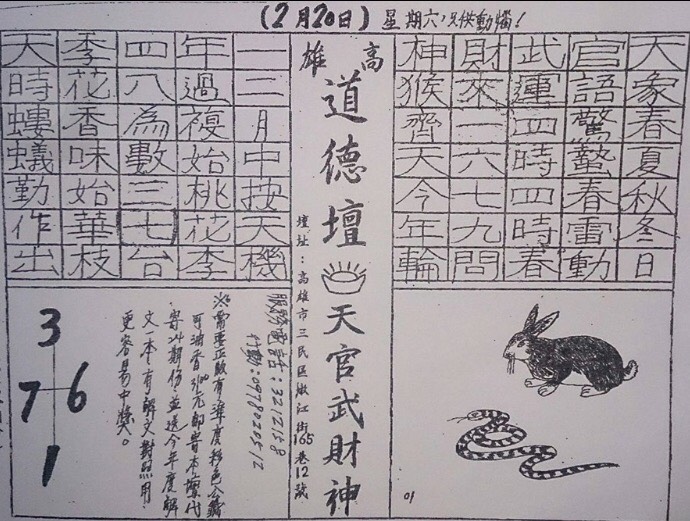 (2月20日)星期六,只供動腦!
天象春夏秋冬日
官語驚蟄春雷動
武運四時四時春
財來一六七九問
神猴齊天今年輪
高雄
道德壇 天官武財神
壇址:高雄市三民區嫩江街165巷12號
一二月中按天機
年過複始桃花李
四八為數三七台
季花香味始華枝
天時螻蟻勤作出
服務電話:3212158
行動:0978020512
※需要正版有準度彩色公籤
可油香300元即寄本壇代
寄24期份,並送今年度解
文一本,有解文對照用,
更容易中獎。
3
7 6
1
01